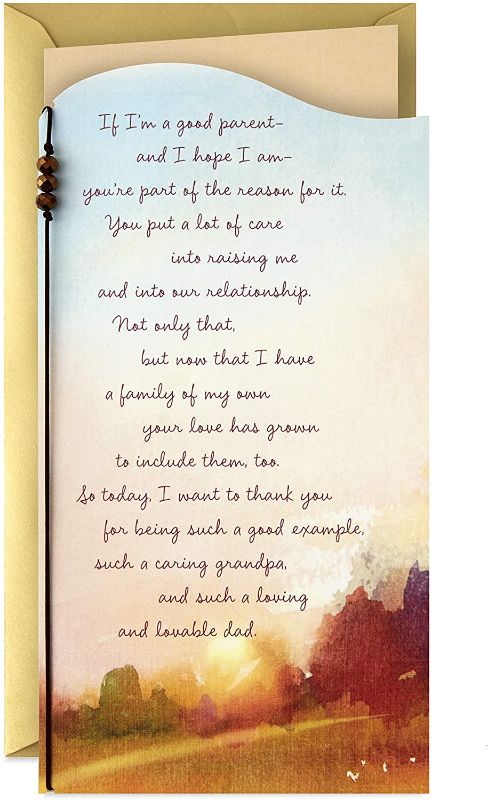 If I'm a good parent-
and I hope I am-
you're part of the reason for it.
You put a lot of care
into raising me
and into our relationship.
Not only that,
but now that I have
a family of my own
your love has grown
to include them, too.
So today, I want to thank you
for being such a good example,
such a caring grandpa,
and such a loving
and lovable dad.